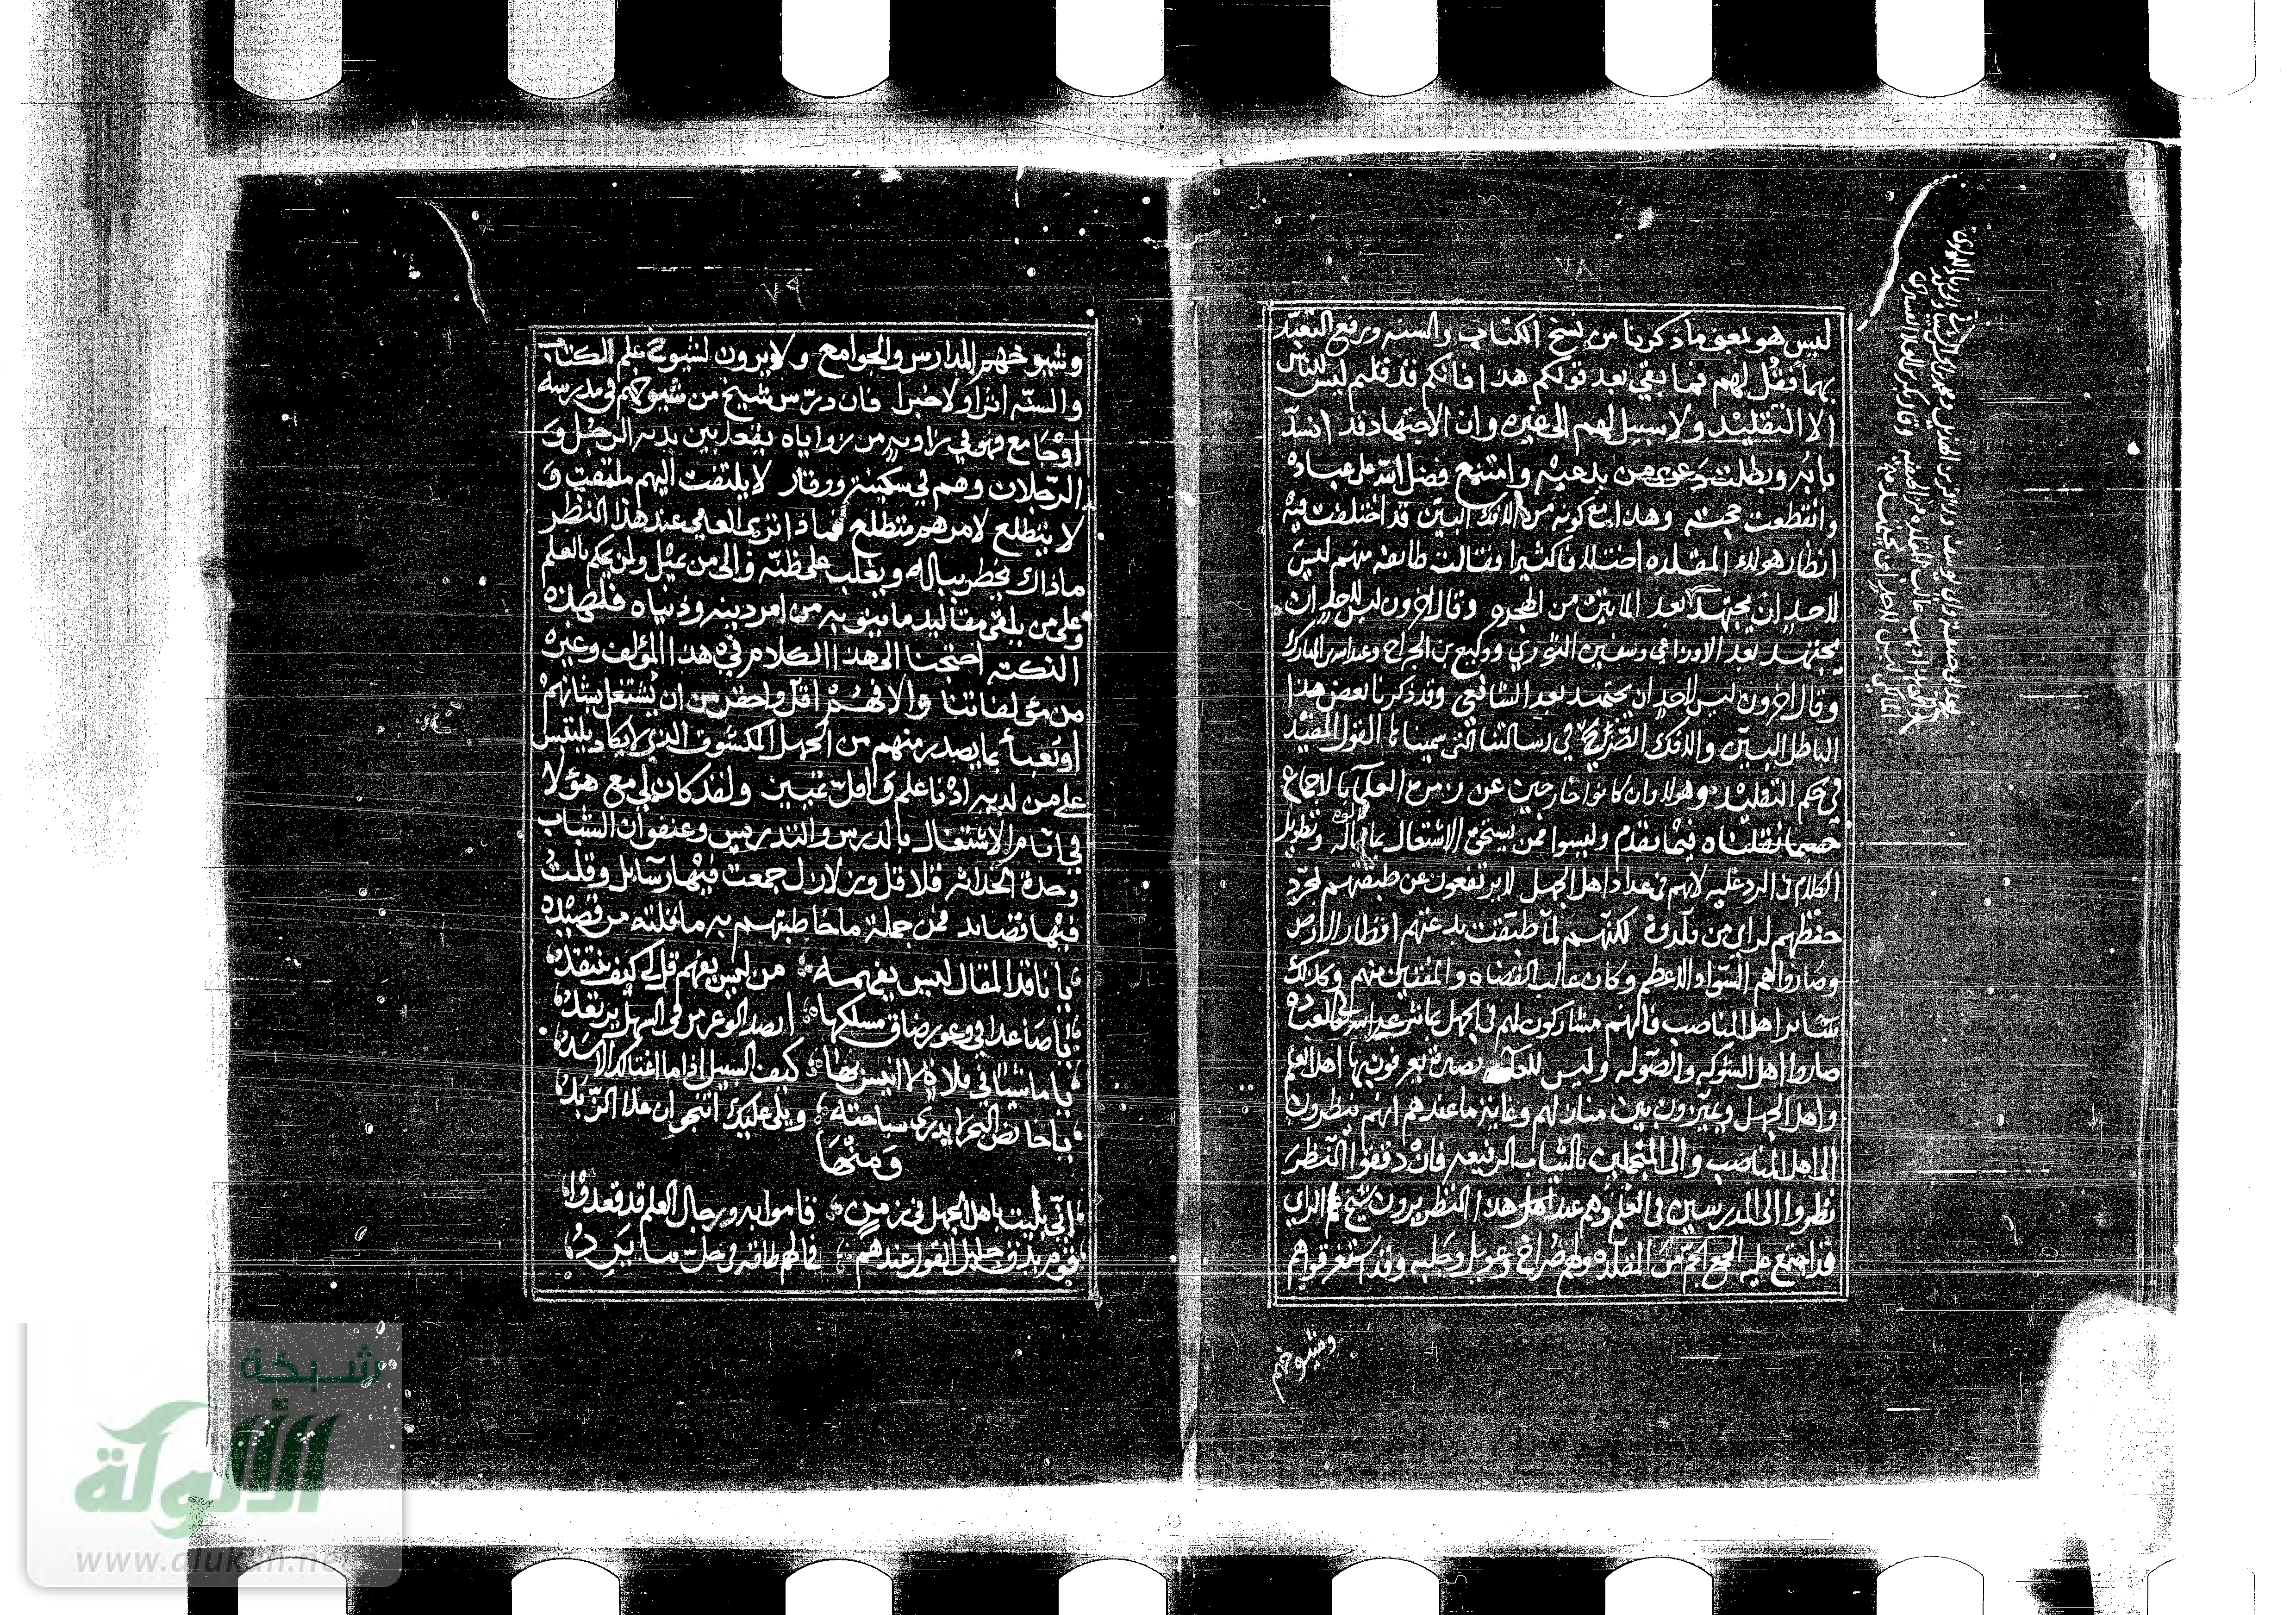 ٧٨
ليس هو بعض ما ذكرنا من نسخ الكتاب والسنه ورفع التعبد
بهما فقل لهم فما بقي بعد قولكم هذا فانكم قد قلتم ليس للناس
الا التقليد ولا سبيل لهم الى غيره وان الاجتهاد قد انسد
بابه وبطلت دعوى من يدعيه وامتنع فضل الله على عباده
وانقطعت حجته وهذا مع كونه من الافك البين قد اختلفت فيه
انظار هولاء المقلده اختلافا كثيرا فقالت طائفه منهم ليس
لاحد ان يجتهد بعد المايتين من الهجره وقال اخرون ليس لاحد ان
يجتهد بعد الاوزاعي وسفين الثوري ووكيع بن الجراح وعبد الله بن المبارك
وقال اخرون ليس لاحد ان يجتهد بعد الشافعي وقد ذكرنا بعض هذا
الباطل البين والافك الصريح في رسالتنا التي سميناها القول المفيد
في حكم التقليد وهولاء وان كانوا خارجين عن زمرة العلماء بالاجماع
حسبما نقلناه فيما تقدم وليسوا ممن يستحق الاشتغال بما قاله وتطويل
الكلام في الرد عليه لانهم في عداد اهل الجهل لا يرتفعون عن طبقتهم لمجرد
حفظهم لراي من قلدوه لكنهم لما طبقت بدعتهم اقطار الارض
وصاروا هم السواد الاعظم وكان غالب القضاه والمفتيين منهم وكذلك
سائر اهل المناصب فانهم مشاركون لهم في الجهل بما شرعه الله لعباده
صاروا اهل الشوكه والصوله وليس للعامه بصيرة يعرفون بها اهل العلم
واهل الجهل ويميزون بين منازلهم وغاية ما عندهم انهم ينظرون
الى اهل المناصب والى المتجملين بالثياب الرفيعه فان دققوا النظر
نظروا الى المدرسين في العلم وهم عند اهل هذا النظر يرون شيخ علم الراي
قد اجتمع عليه الجمع الجم من المقلده ولهم صراخ وعويل وجلبه وقد استغرقوا هم
وشيوخهم
٧٩
وشيوخهم المدارس والجوامع ولا يرون لشيوخ علم الكتاب
والسنه اثرا ولا خبرا فان درس شيخ من شيوخهم في مدرسه
او جامع فهو في زاويه من زواياه يقعد بين يديه الرجل و
الرجلان وهم في سكينة ووقار لا يلتفت اليهم ملتفت و
لا يتطلع لامرهم متطلع فماذا ترى العامي عند هذا النظر
ماذاك يخطر بباله ويغلب على ظنه والى من يميل ولمن يحكم بالعلم
وعلى من يلقي مقاليد ما ينوبه من امر دينه ودنياه فلهذه
النكته احتجنا الى هذا الكلام في هذا المؤلف وغيره
من مؤلفاتنا والا فهم اقل واحقر من ان يشتغل بشانهم
او يعبأ بما يصدر منهم من الجهل المكشوف الذي لا يكاد يلتبس
على من لديه ادنا علم واقل تمييز ولقد كان لي مع هؤلا
في ايام الاشتغال بالدرس والتدريس وعنفوان الشباب
وحدة الحداثه قلاقل وزلازل جمعت فيها رسائل وقلت
فيها قصائد فمن جملة ما خاطبتهم به ما قلته من قصيده
يا ناقدا لمقال ليس يفهمه من ليس يفهم قل لي كيف ينتقد
يا صاعدا في وعور ضاق مسلكها أيصعد الوعر من في السهل يرتعد
يا ماشيا في فلاة لا انيس بها كيف السبيل اذا ما اغتالك الاسد
يا خائض البحر لا يدري سباحته ويلي عليك اتنجو ان علا الزبد
ومنها
اني بليت باهل الجهل في زمن قاموا به ورجال العلم قد قعدوا
قوم يدق جليل القول عندهم فما لهم طاقة في حل ما يرد
شبكة
الألوكة
www.alukah.net